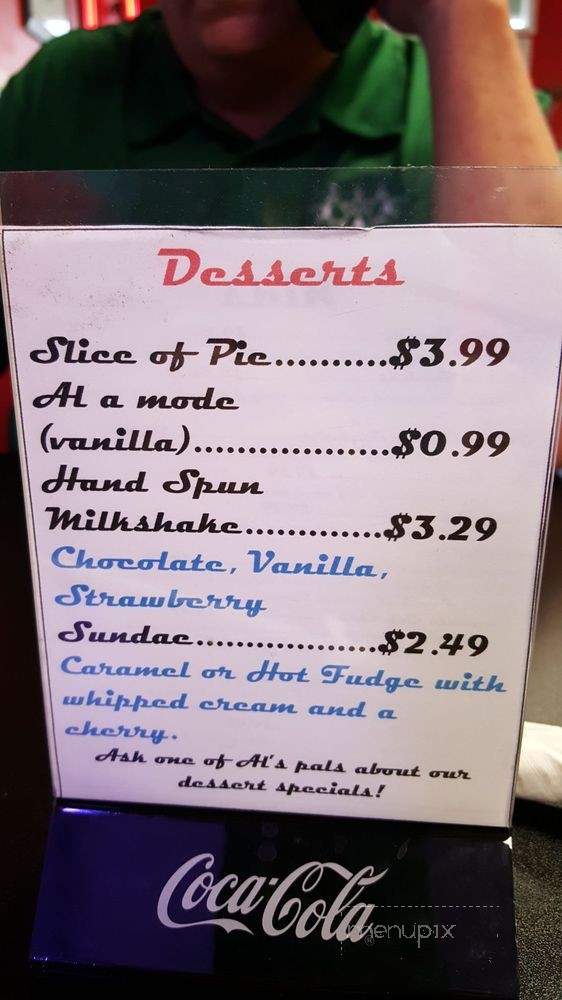 Desserts
Slice of Pie..........$3.99
Al a mode
(vanilla)..................$0.99
Hand Spun
Milkshake.............$3.29
Chocolate, Vanilla,
Strawberry
Sundae.................$2.49
Caramel or Hot Fudge with
whipped cream and a
cherry.
Ask one of Al's pals about our
dessert specials!
Coca-Cola
menupix